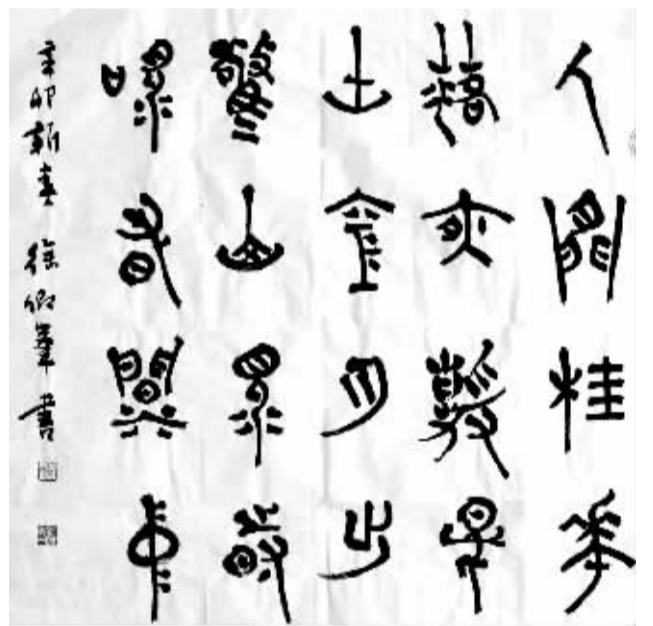 人閒桂華
落夜靜春
山空月出
驚山鳥時
鳴春澗中
辛卯新春 徐 書